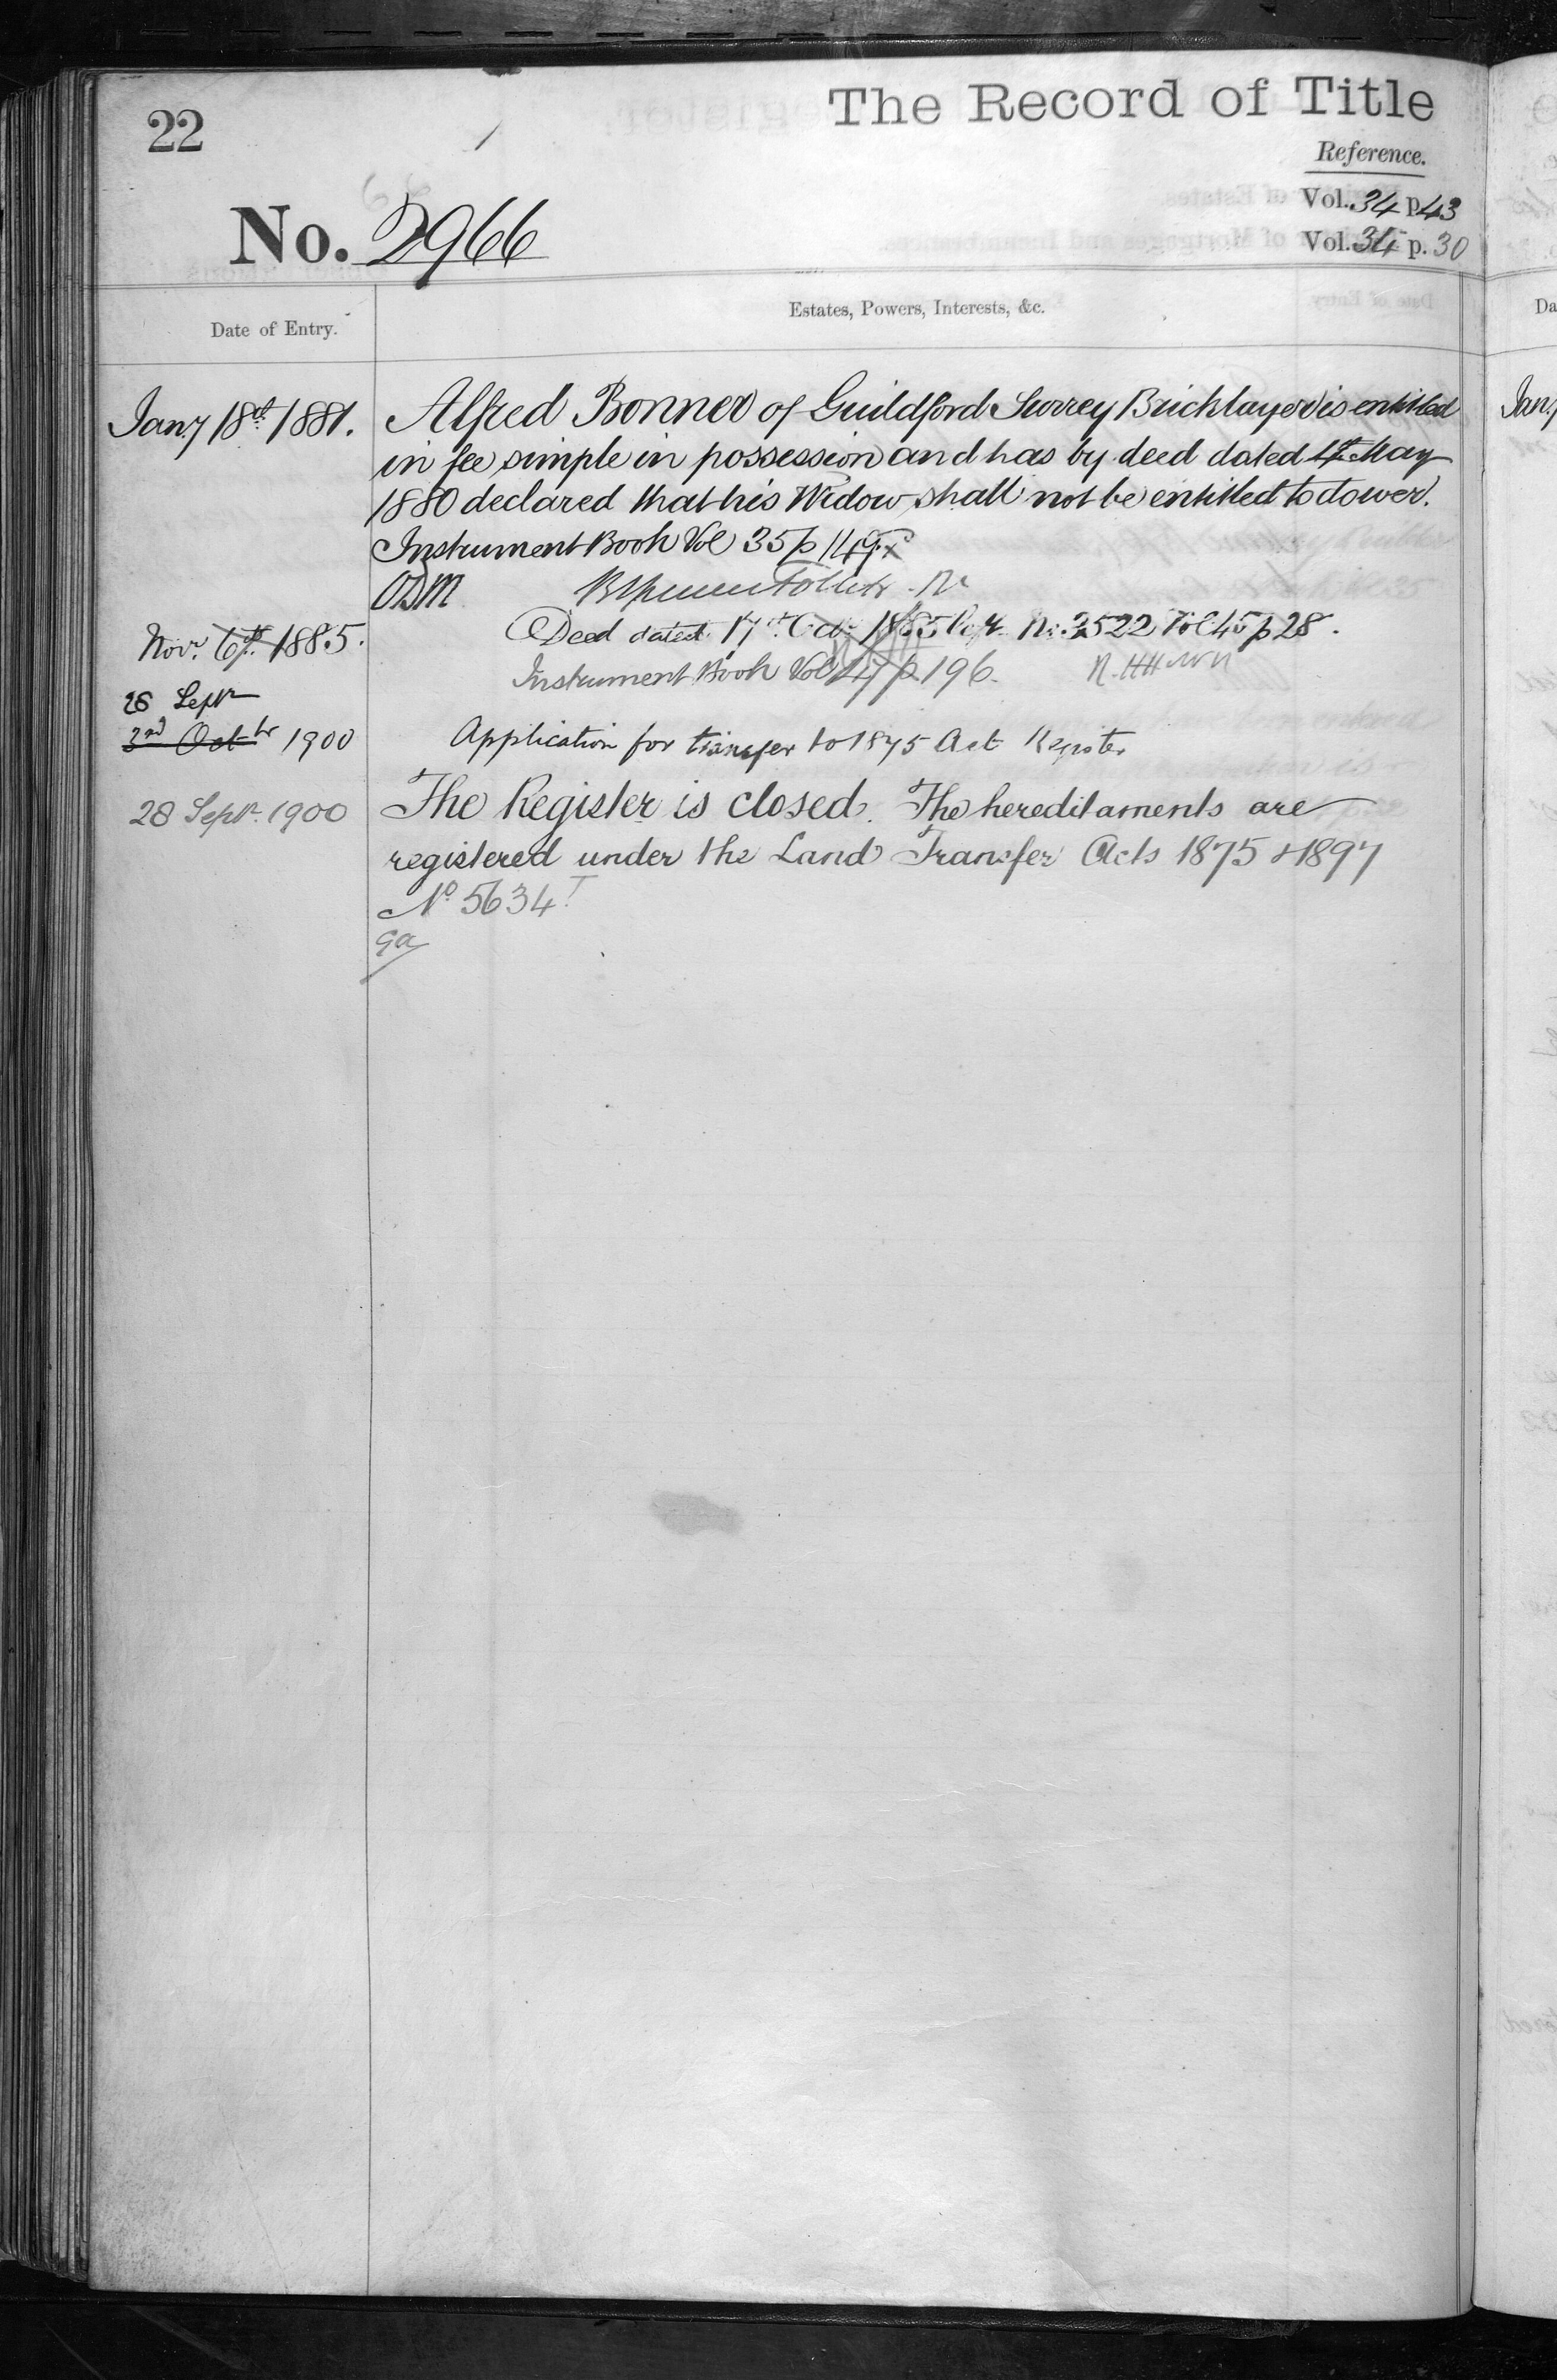 22
The Record of Title
Reference.
Vol. 34 p. 43
No. 2966
Vol. 35 p. 30
Date of Entry.
Estates, Powers, Interests, &c.
Jany 18th 1881. Alfred Bonner of Guildford Surrey Bricklayer is entitled
in fee simple in possession and has by deed dated 4th May
1880 declared that his Widow shall not be entitled to dower.
Instrument Book Vol 35 p 149
Novr. 6th 1885. Deed dated 17th Octr 1885 No. 3522 Vol 45 p 28.
Instrument Book Vol 47 p. 196.
26 Septr
3rd Octbr 1900 Application for transfer to 1875 Act Register
28 Septr. 1900 The Register is closed. The hereditaments are
registered under the Land Transfer Acts 1875 & 1897
No 5634